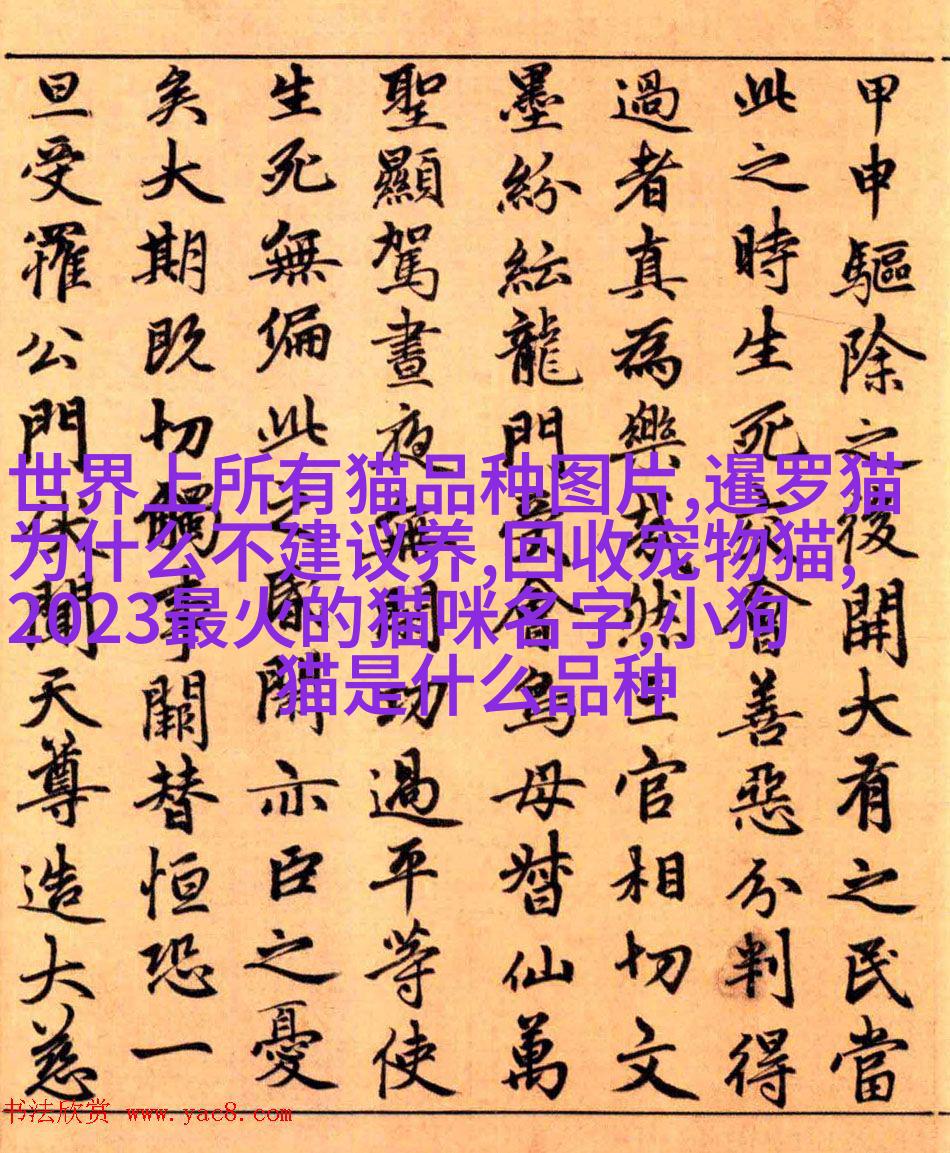 甲申驅除之後開大有之民當
此之時生死交會善惡分判得
過者真為樂哉然三官相切文
墨紛紜龍門受會鳥母督仙萬
聖顯駕晝夜無閒功過平等使
生死無偏此之昏鬧亦臣之憂
矣大期既切觸事闕替恒恐一
旦受罹公門休聞天尊造大慈
世界上所有猫品种图片,暹罗猫
为什么不建议养,回收宠物猫,
2023最火的猫咪名字,小狗
猫是什么品种
书法欣赏 www.yac8.com